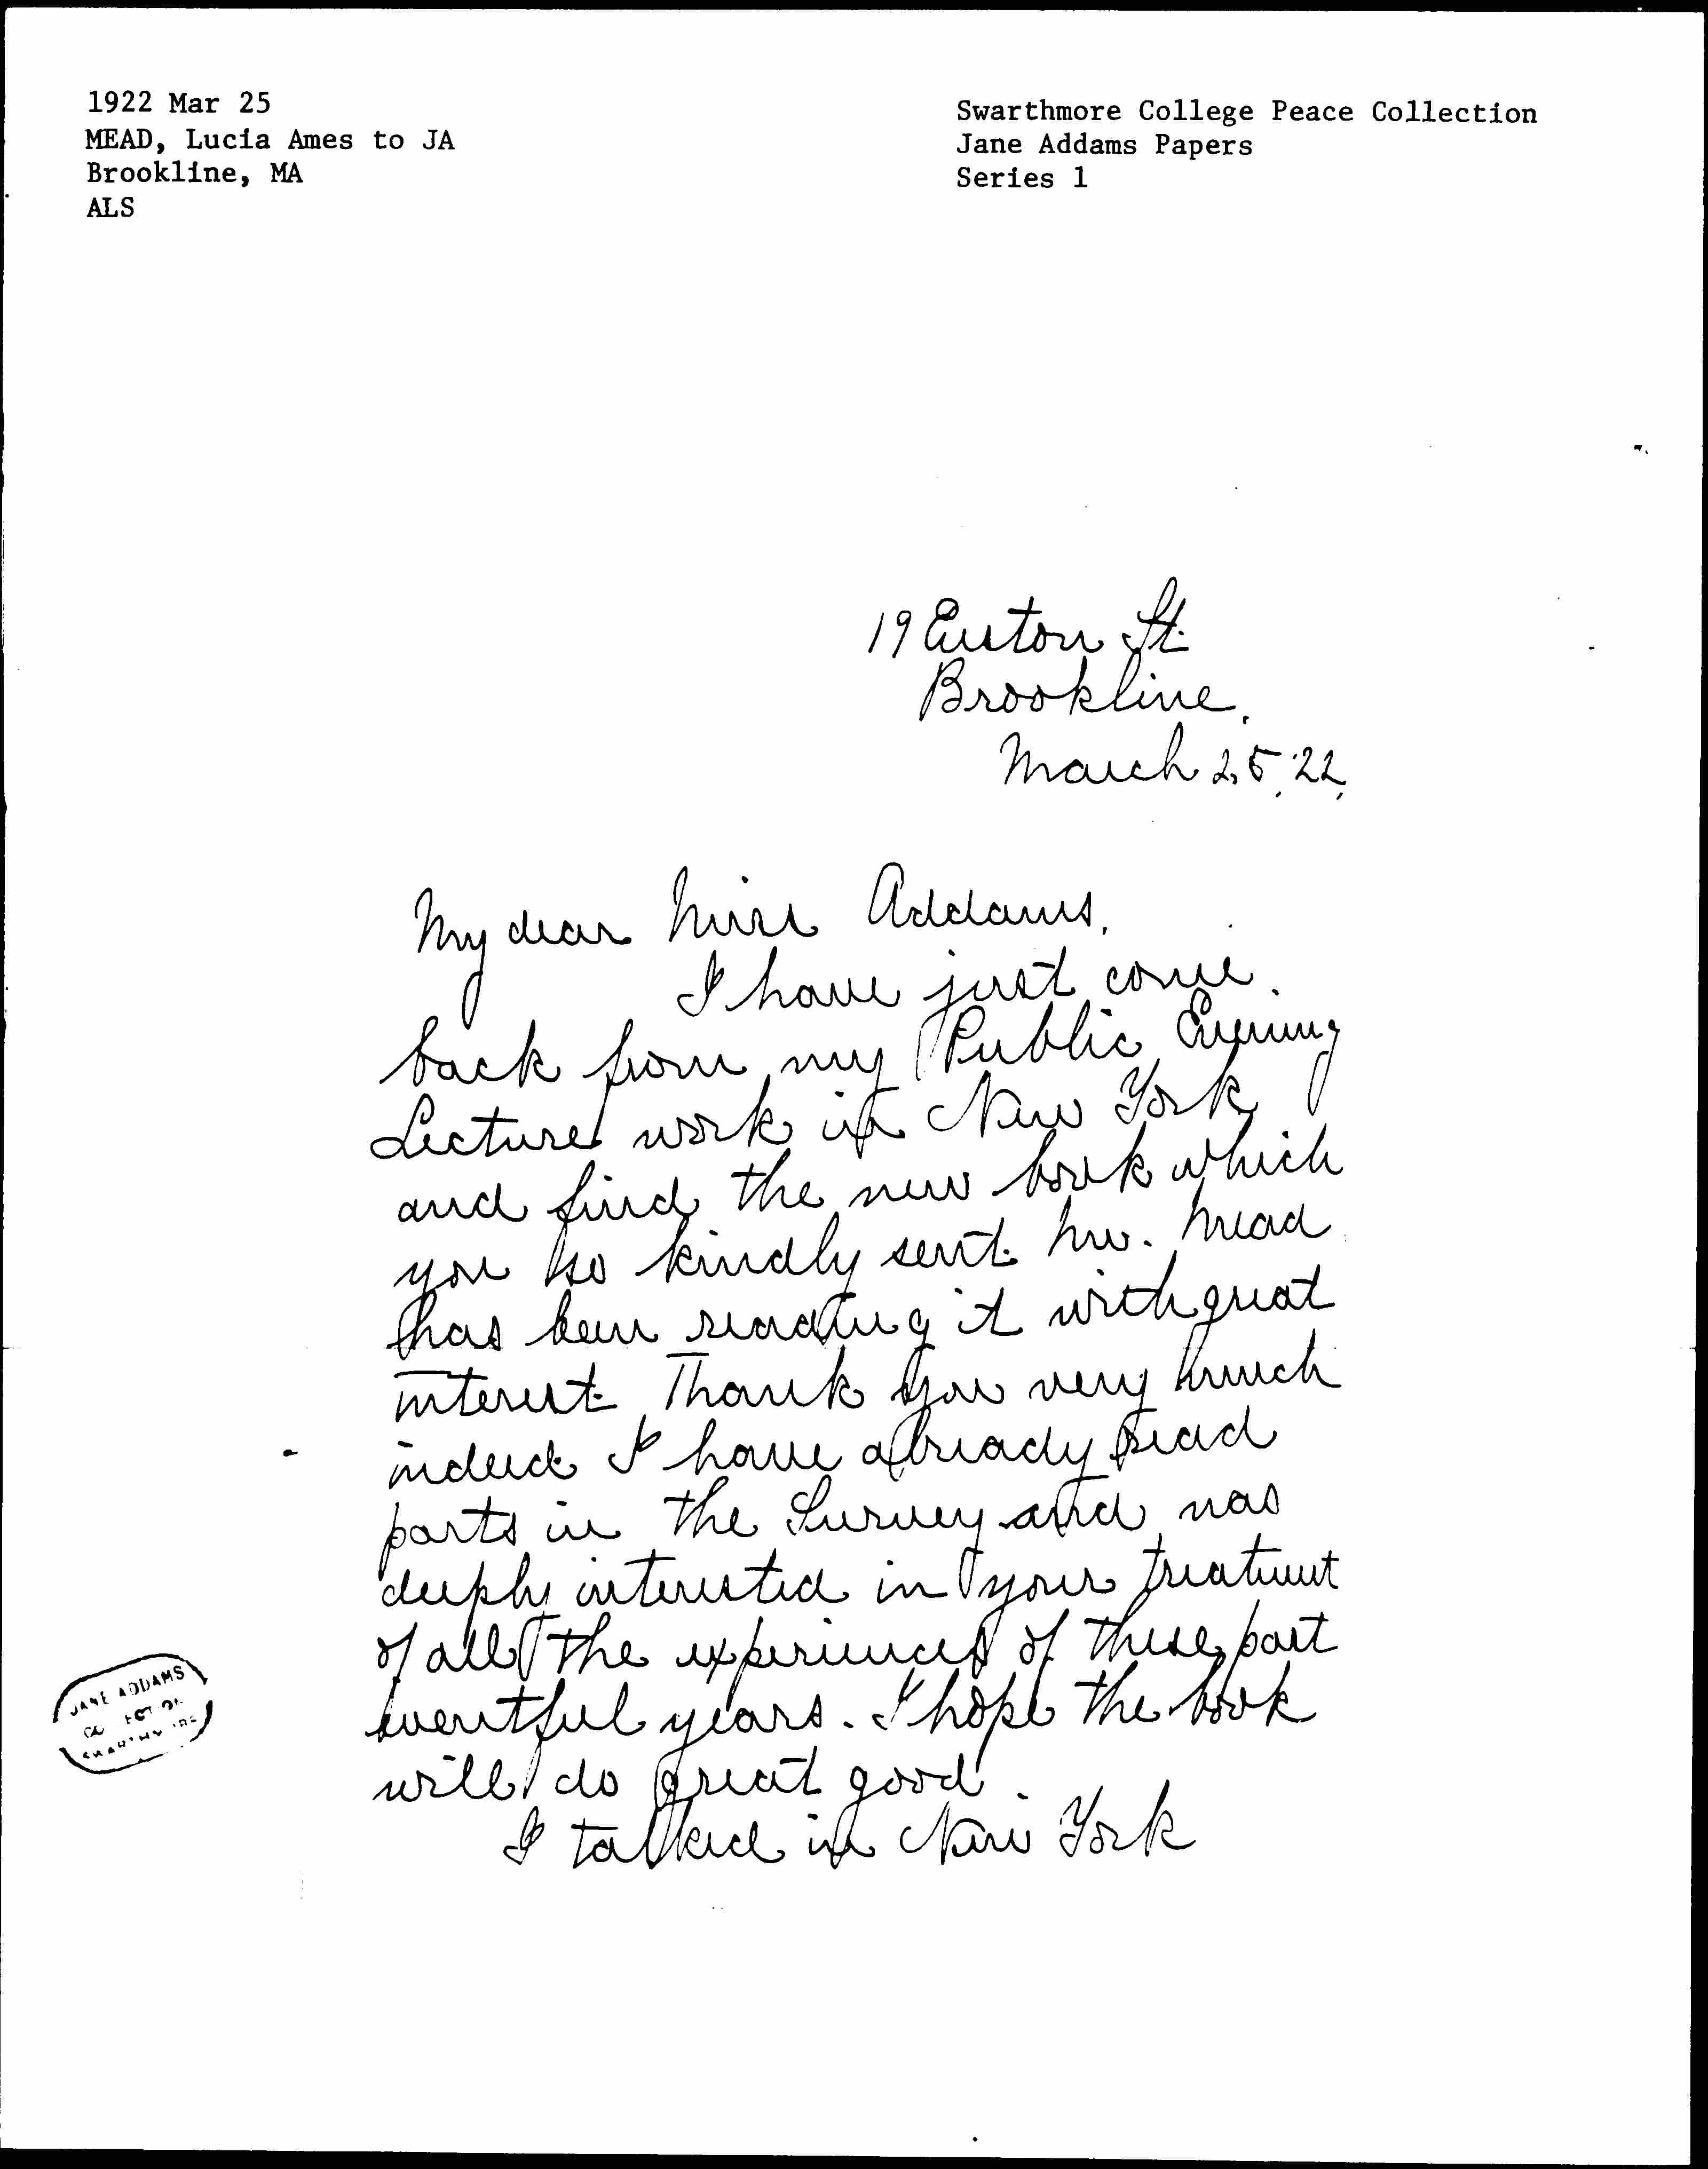 1922 Mar 25
MEAD, Lucia Ames to JA
Brookline, MA
ALS
Swarthmore College Peace Collection
Jane Addams Papers
Series 1
19 Euston St.
Brookline.
March 25, '22,
My dear Miss Addams,
I have just come
back from my Public Evening
Lectures work in New York
and find the new book which
you so kindly sent. Mr. Mead
has been reading it with great
interest. Thank you very much
indeed. I have already read
parts in the Survey and was
deeply interested in your treatment
of all the experiences of these past
eventful years. I hope the book
will do great good.
I talked in New York
JANE ADDAMS